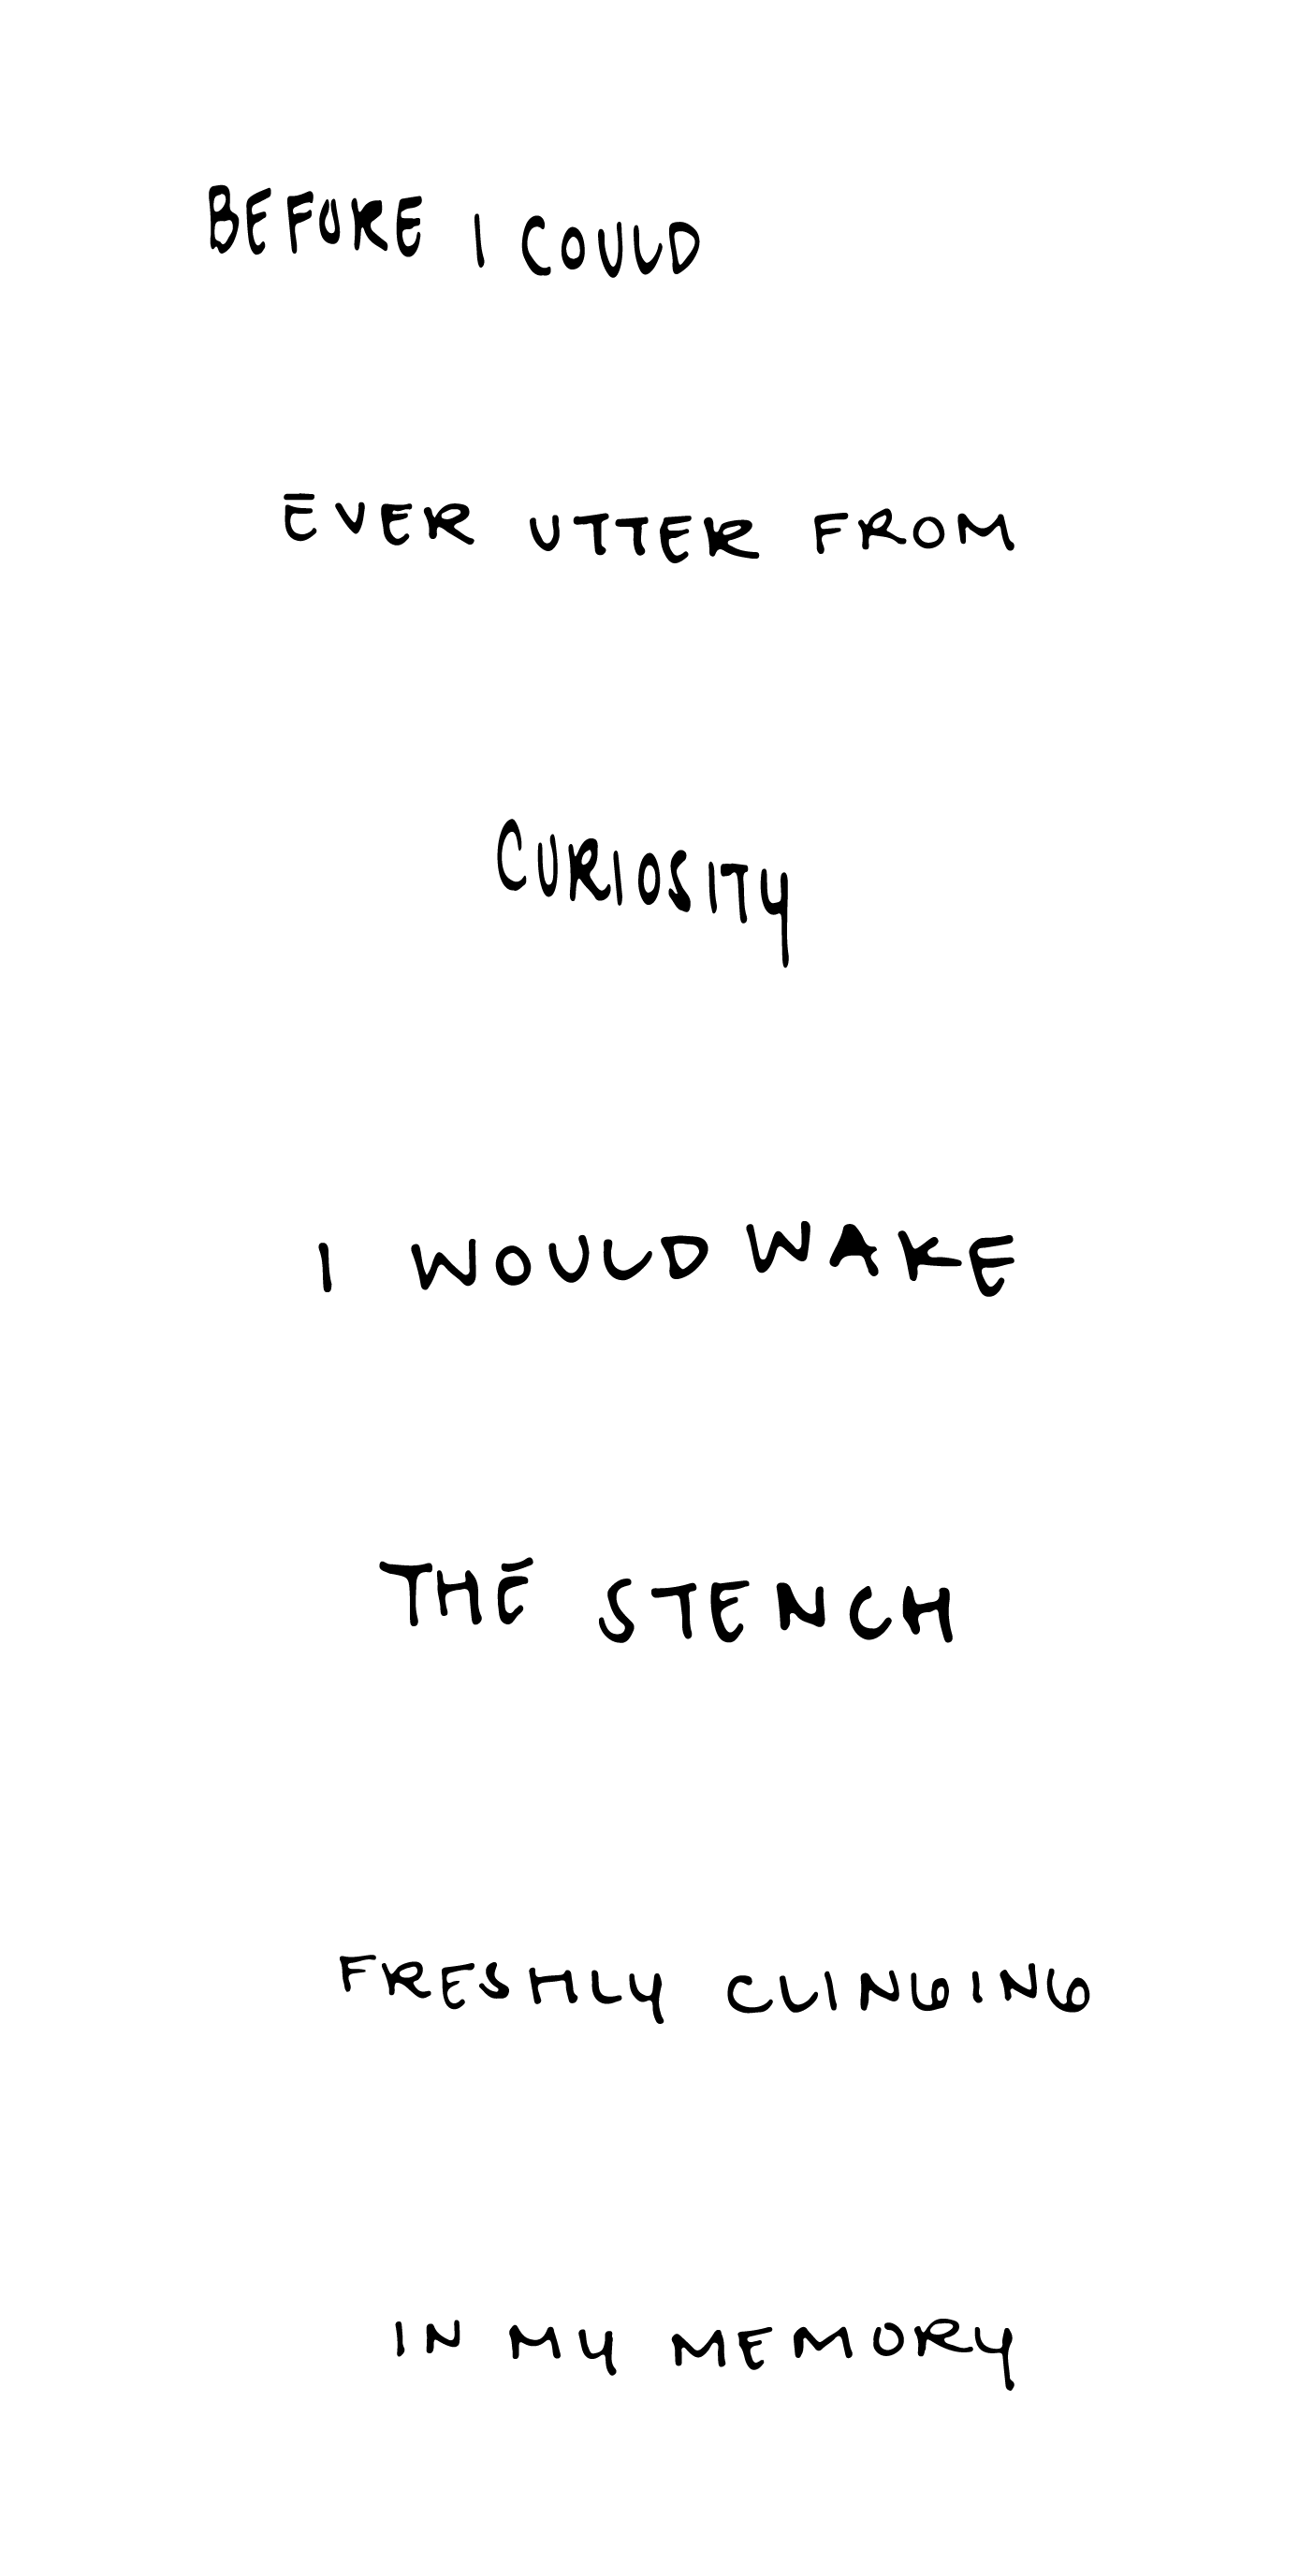 BEFORE I COULD
EVER UTTER FROM
CURIOSITY
I WOULD WAKE
THE STENCH
FRESHLY CLINGING
IN MY MEMORY